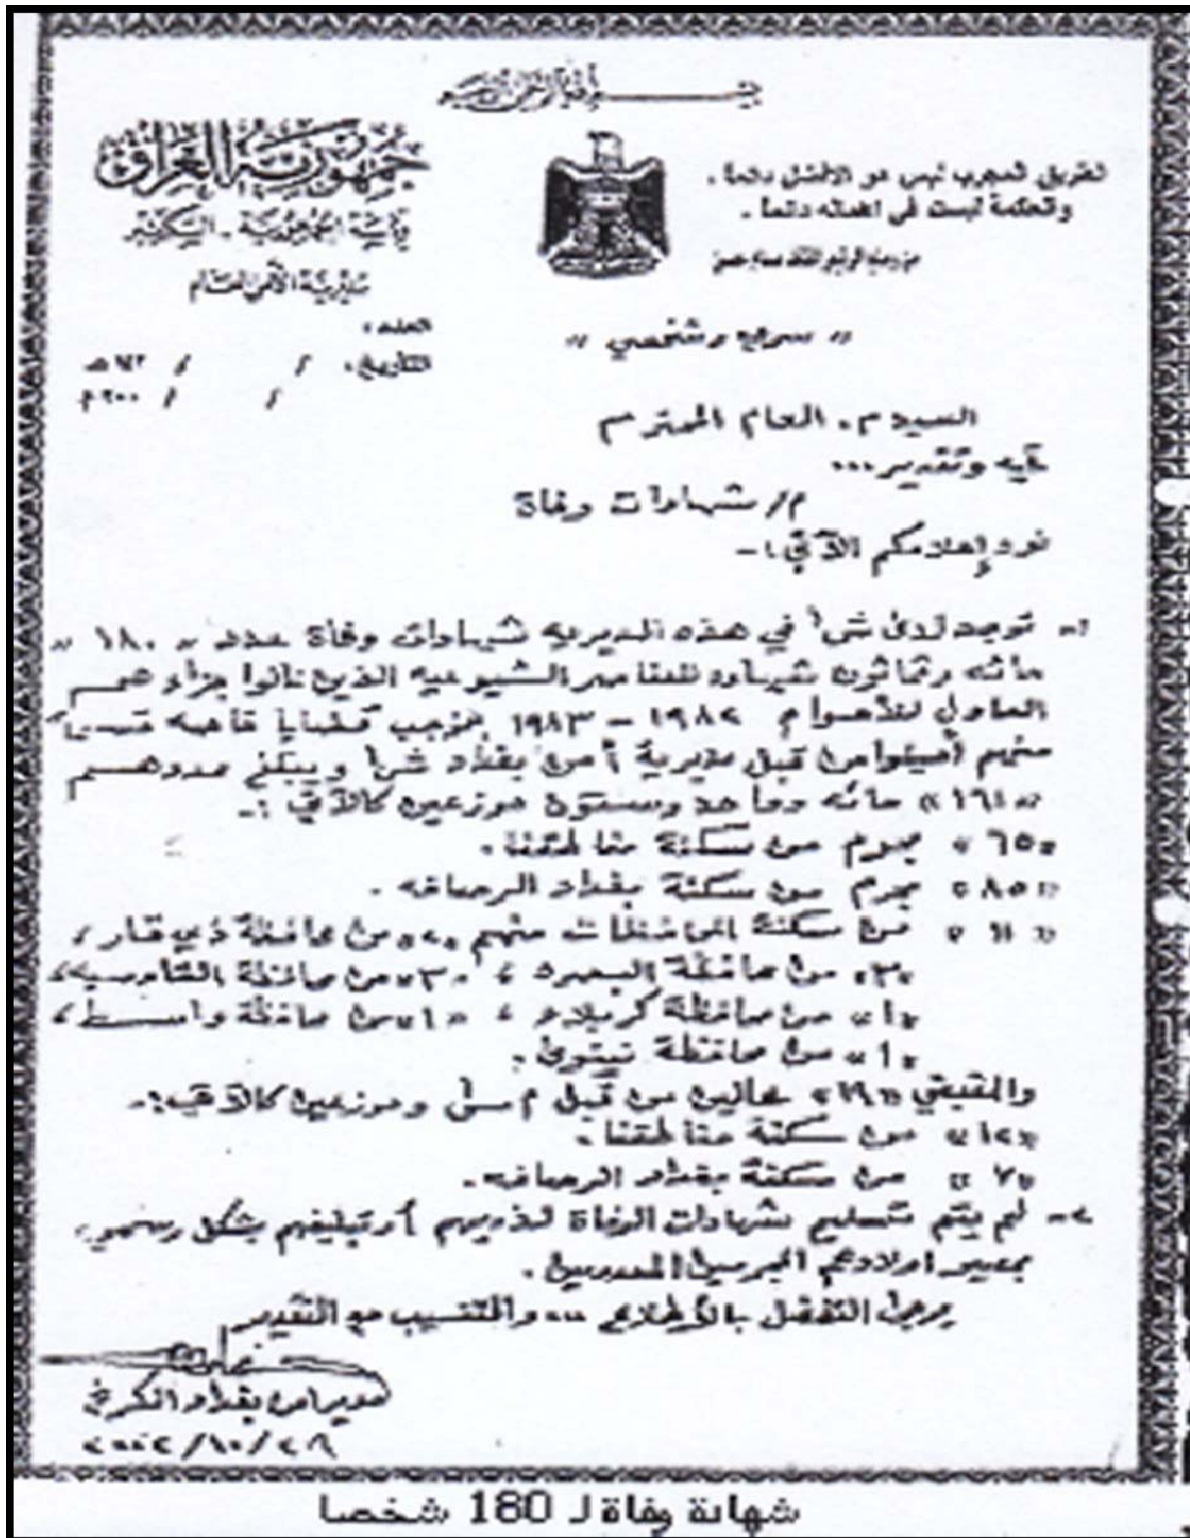 بسم الله الرحمن الرحيم
جمهورية العراق
رئاسة الجمهورية - السكرتير
مديرية الأمن العام
الطريق المجرب ليس هو الافضل دائماً .
والحكمة ليست في اهماله دائماً .
العدد :
التأريخ : / / ١٤٢ هـ
/ / ٢٠٠ م
« سري وشخصي »
السيد م. العام المحترم
تحيه وتقدير ...
م/ شهادات وفاة
نود إعلامكم الآتي :-
١- توجد لدى ش١ في هذه المديريه شهادات وفاة عدد « ١٨٠ »
مائه وثمانون شهاده للعناصر الشيوعيه الذين نالوا جزاءهم
العادل للأعوام ١٩٨٢ - ١٩٨٣ بموجب قضايا خاصه قسم
منهم أحيلوا من قبل مديرية أمن بغداد ش١ ويبلغ عددهم
« ١٦١ » مائه وواحد وستون موزعين كالآتي :-
« ٦٥ » مجرم من سكنة مناطقنا .
« ٨٥ » مجرم من سكنة بغداد الرصافه .
« ١١ » من سكنة المحافظات منهم « ٢ » من محافظة ذي قار ،
« ٣ » من محافظة البصره ، « ٣ » من محافظة القادسيه ،
« ١ » من محافظة كربلاء ، « ١ » من محافظة واسط ،
« ١ » من محافظة نينوى .
والمتبقي « ١٩ » محالين من قبل وموزعين كالآتي :-
« ١٢ » من سكنة مناطقنا .
« ٧ » من سكنة بغداد الرصافه .
٢- لم يتم تسليم شهادات الوفاة لذويهم أو تبليغهم بشكل رسمي
بمصير اولادهم المجرمين المعدومين .
يرجى التفضل بالأطلاع ... والتنسيب مع التقدير
مدير امن بغداد الكرخ
٢٠٠٢/١٠/٢٩
شهادة وفاة لـ 180 شخصا